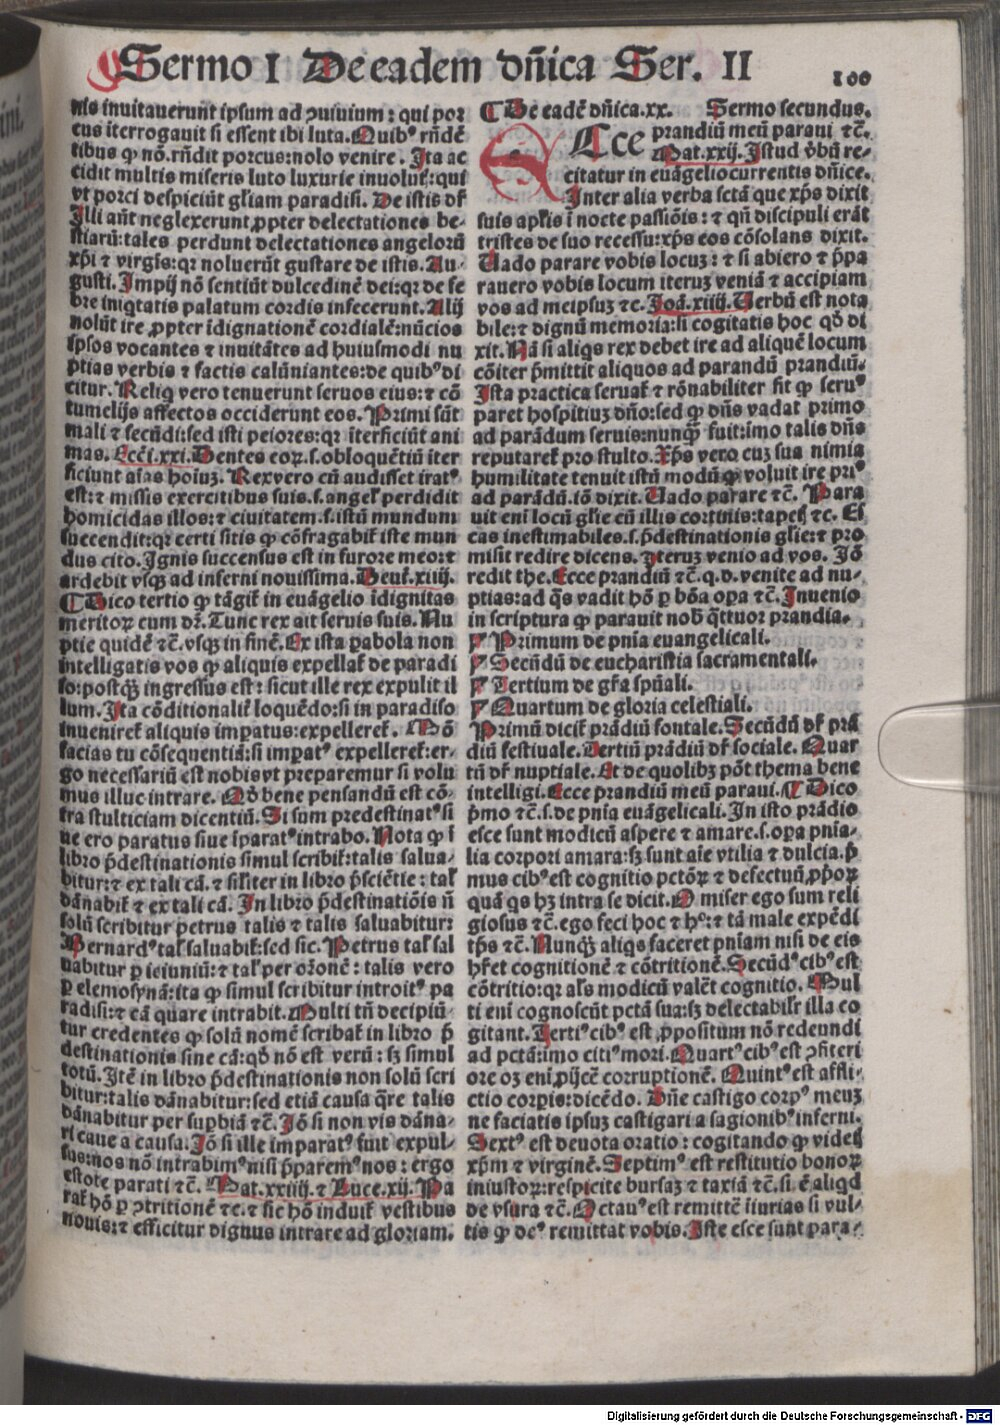 Sermo I De eadem dñica Ser. II
100
nis inuitauerunt ipsum ad ꝯuiuium: qui por
cus īterrogauit si essent ibi luta. Quibꝰ rñdē
tibus ꝙ nō. rñdit porcus: nolo venire. Ita ac
cidit multis miseris luto luxurie inuolut̄: qui
vt porci despiciūt gl'iam paradisi. De istis dr̄
Illi aūt neglexerunt ꝓpter delectationes be-
stiarū: tales perdunt delectationes angelorū
xp̄i et virgīs: qr noluerūt gustare de istis. Au-
gusti. Impij nō sentiūt dulcedinē dei: qr de fe
bre iniqtatis palatum cordis infecerunt. Alij
nolūt ire ꝓpter īdignationē cordialē: nūcios
ipsos vocantes et inuitātes ad huiusmodi nu
ptias verbis et factis calūniantes: de quibꝰ di
citur. Reliq vero tenuerunt seruos eius: et cō
tumelijs affectos occiderunt eos. Primi sūt
mali et secūdi: sed isti peiores: qr īterficiūt ani
mas. Eccī. xxi. Dentes eoꝝ. s. obloquētiū iter
ficiunt aīas hoīuꝫ. Rex vero cū audisset iratꝰ
est: et missis exercitibus suis. s. angel' perdidit
homicidas illos: et ciuitatem. s. istū mundum
succendit: qr certi sitis ꝙ cōfragabit̄ iste mun
dus cito. Ignis succensus est in furore meo: et
ardebit vsqꝫ ad inferni nouissima. Deut̄. xiiij.
¶ Dico tertio ꝙ tāgit̄ in euāgelio īdignitas
meritoꝝ cum dr̄. Tunc rex ait seruis suis. Nu
ptie quidē etc̄. vsqꝫ in finē. Ex ista ꝑabola non
intelligatis vos ꝙ aliquis expellat̄ de paradi
so: postqꝫ ingressus est: sicut ille rex expulit il
lum. Ita cōditionalit̄ loquēdo: si in paradiso
inueniret̄ aliquis imparatus: expelleret̄. Mō
facias tu cōsequentiā: si imparatꝰ expelleret̄: er-
go necessariū est nobis vt preparemur si volu
mus illuc intrare. Qd̄ bene pensandū est cō-
tra stulticiam dicentiū. Si sum predestinatꝰ si
ue ero paratus siue īparatꝰ intrabo. Nota ꝙ ī
libro p̄destinationis simul scribit̄: talis salua-
bitur: et ex tali cā. et sīliter in libro p̄sciētie: tal'
dānabit̄ et ex tali cā. In libro p̄destinatiōis nō
solū scribitur petrus talis et talis saluabitur:
Bernardꝰ tal' saluabit̄: sed sic. Petrus tal' sal
uabitur ꝑ ieiuniū: et tal' per orōnē: talis vero
ꝑ elemosynā: ita ꝙ simul scribitur introitꝰ pa
radisi: et cā quare intrabit. Multi tn̄ decipiū-
tur credentes ꝙ solū nomē scribat̄ in libro p̄
destinationis sine cā: qd̄ nō est verū: sꝫ simul
totū. Itē in libro p̄destinationis non solū scri
bitur: talis dānabitur: sed etiā causa q̄re talis
dānabitur per sup̄biā etc̄. Iō si non vis dāna-
ri caue a causa. Iō si ille imparatꝰ fuit expul-
sus: nos nō intrabimꝰ nisi p̄paremꝰ nos: ergo
estote parati etc̄. Mat. xxiiij. et Luce. xij. Pa
rat̄ hō ꝑ ꝯtritionē etc. et sic hō induit̄ vestibus
nouis: et efficitur dignus intrare ad gloriam.
¶ De eadē dñica. xx. Sermo secundus.
Ecce prandiū meū paraui etc̄.
Mat. xxij. Istud v̄bū re-
citatur in euāgelio currentis dñice.
Inter alia verba sctā que xp̄s dixit
suis apl̄is ī nocte passiōis: et qn̄ discipuli erāt
tristes de suo recessu: xp̄s eos cōsolans dixit.
Uado parare vobis locuꝫ: et si abiero et p̄pa
rauero vobis locum iteruꝫ veniā et accipiam
vos ad meipsuꝫ etc. Ioā. xiiij. Uerbū est nota
bile: et dignū memoria: si cogitatis hoc qd̄ di
xit. Nā si aliqs rex debet ire ad aliquē locum
cōiter p̄mittit aliquos ad parandū prandiū.
Ista practica seruat̄ et rōnabiliter fit ꝙ seruꝰ
paret hospitiuꝫ dño: sed ꝙ dn̄s vadat primo
ad parādum seruis: nunqꝫ fuit: imo talis dn̄s
reputaret̄ pro stulto. Xp̄s vero cuꝫ sua nimia
humilitate tenuit istū modū ꝙ voluit ire priꝰ
ad parādū. iō dixit. Uado parare etc̄. Para
uit enī locū gl'ie cū illis cortinis: tapet̄ etc. Es
cas inestimabiles. s. p̄destinationis gl'ie: et pro
misit redire dicens. Iteruꝫ venio ad vos. Iō
redit the. Ecce prandiū etc̄. q. d. venite ad nu-
ptias: ad q̄s vadit hō ꝑ bōa oꝑa etc̄. Inuenio
in scriptura ꝙ parauit nob̄ q̄ttuor prandia.
Primum de pn̄ia euangelicali.
Secūdū de eucharistia sacramentali.
Tertium de gr̄a spūali.
Quartum de gloria celestiali.
Primū dicit̄ prādiū fontale. Secūdū dr̄ prā
diū festiuale. Tertiū prādiū dr̄ sociale. Quar
tū dr̄ nuptiale. Et de quolibꝫ pōt thema bene
intelligi. Ecce prandiū meū paraui. ¶ Dico
p̄mo etc̄. s. de pn̄ia euāgelicali. In isto prādio
esce sunt modicū aspere et amare. s. oꝑa pn̄ia-
lia corpori amara: sꝫ sunt aīe vtilia et dulcia. p̄
mus cibꝰ est cognitio pctōꝝ et defectuū ꝓpōꝝ
quā qs hꝫ intra se dicit. O miser ego sum reli
giosus etc̄. ego feci hoc et hꝰ: et tā male expēdi
tp̄s etc̄. Nunqꝫ aliqs faceret pn̄iam nisi de eis
hr̄et cognitionē et cōtritionē. Secūdꝰ cibꝰ est
cōtritio: qr al's modicū valet cognitio. Mul
ti enī cognoscūt pctā sua: sꝫ delectabilr̄ illa co
gitant. Tertiꝰ cibꝰ est ꝓpositum nō redeundi
ad pctā: imo citiꝰ mori. Quartꝰ cibꝰ est ꝯfiteri
ore oꝫ enī ꝓijcē corruptionē. Quintꝰ est affli-
ctio corꝑis: dicēdo. Dn̄e castigo corpꝰ meuꝫ
ne faciatis ipsuꝫ castigari a sagionibꝰ inferni.
Sextꝰ est deuota oratio: cogitando ꝙ videt̄
xp̄m et virginē. Septimꝰ est restitutio bonoꝝ
iniustoꝝ: respicite bursaꝫ et taxiā etc̄. si ē aliqd
de vsura etc̄. Octauꝰ est remittē iiurias si vul-
tis ꝙ deꝰ remittat vobis. Iste esce sunt para-
Digitalisierung gefördert durch die Deutsche Forschungsgemeinschaft - DFG